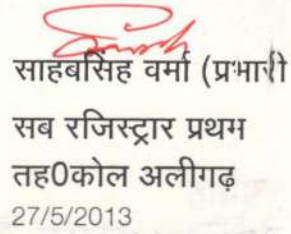 साहबसिंह वर्मा (प्रभारी
सब रजिस्ट्रार प्रथम
तह0कोल अलीगढ़
27/5/2013